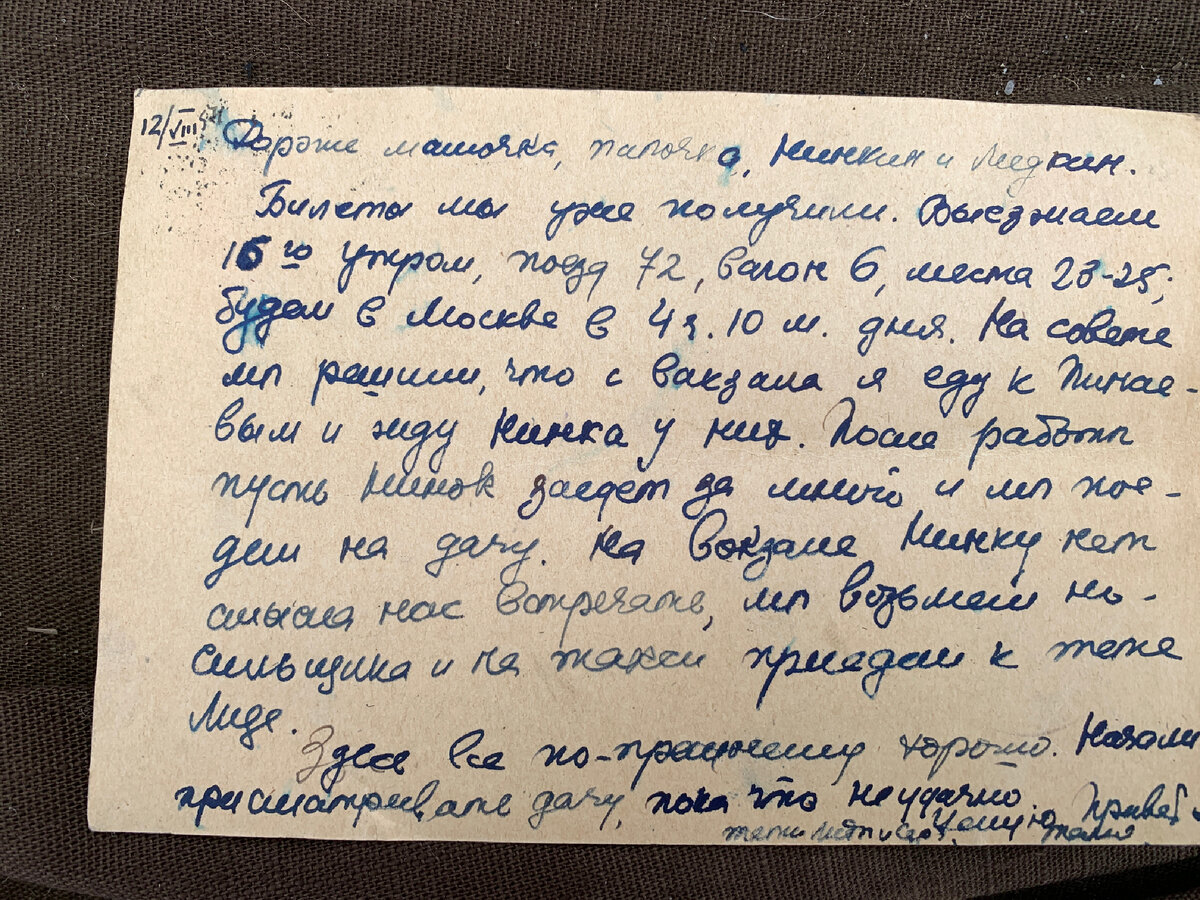 12/VIII
Дорогие мамочка, папочка, Нинкин и Лидкин.
Билеты мы уже получили. Выезжаем
го утром, поезд 72, вагон 6, места 23-25;
будем в Москве в 4 ч. 10 м. дня. На совете
мы решили, что с вакзала я еду к Пинае-
вым и жду Нинка у них. После работы
пусть Нинок заедет за мной и мы пое-
дем на дачу. На вокзале Нинку нет
смысла нас встречать, мы возьмем но-
сильщика и на такси приедем к тете
Лиде.
Здесь все по-прежнему хорошо. Начали
присматривать дачу, пока что неудачно. Привет
тети Целую